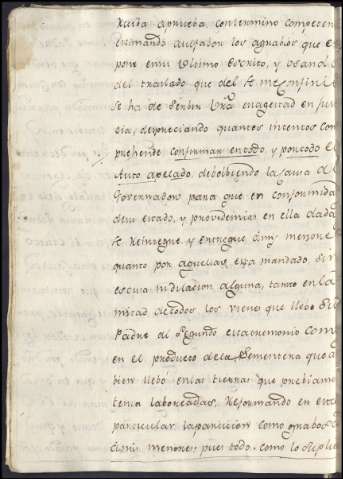 xuida aprueba con termino competen
tomando avisadon los agrabios que e
pone en su ultimo escrito, y usando
del traslado que del se me confirio
se ha de servir Vra magestad en jus
cia, despreciando quantos intentos com
prehende confirmar en todo, y por todo el
Auto apelado, debolbiendo la causa al
Governador para que en conformidad
de su estado, y providencias en ella dadas
se reintegre y entregue a mis menores
quanto por aquellas esta mandado, sin
escusa ni dilacion alguna, tanto en la
mitad de todos los vienes que llebo su
Padre al segundo matrimonio como
en el producto de la sementera que ta
bien llebo en las tierras que previamente
tenia laboreadas, reformando en esta
particular la particion como grabosa
a mis menores, pues todo, como lo suplico